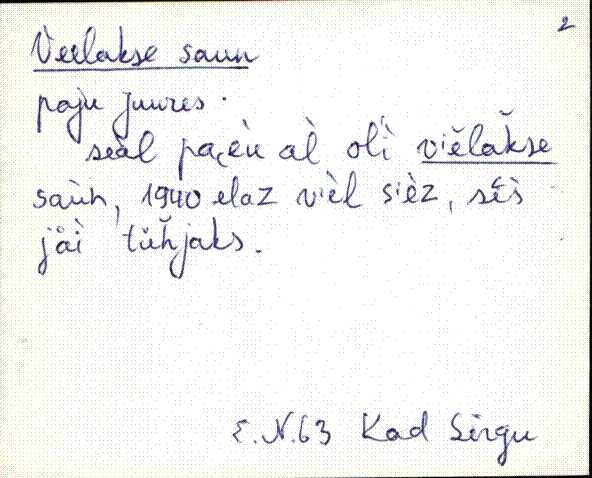 2
Veelakse saun
paju juures.
seàl pa̧èu al̀ olì viĕlak̆se
saùn, 1940 elaz vièl sièz, sĕ̀s
jäì tüh̆jaks.
E.N.63 Kad Sirgu